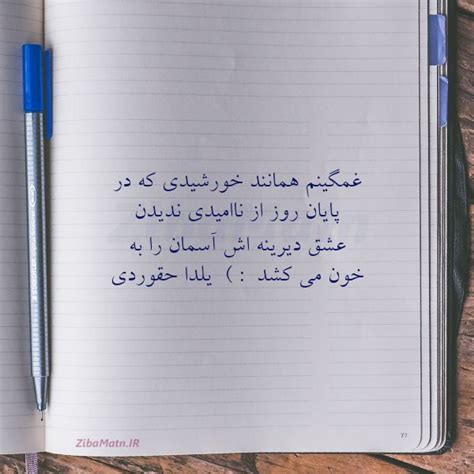 غمگینم همانند خورشیدی که در
پایان روز از ناامیدی ندیدن
عشق دیرینه اش آسمان را به
خون می کشد  :)  یلدا حقوردی
ZibaMatn.IR